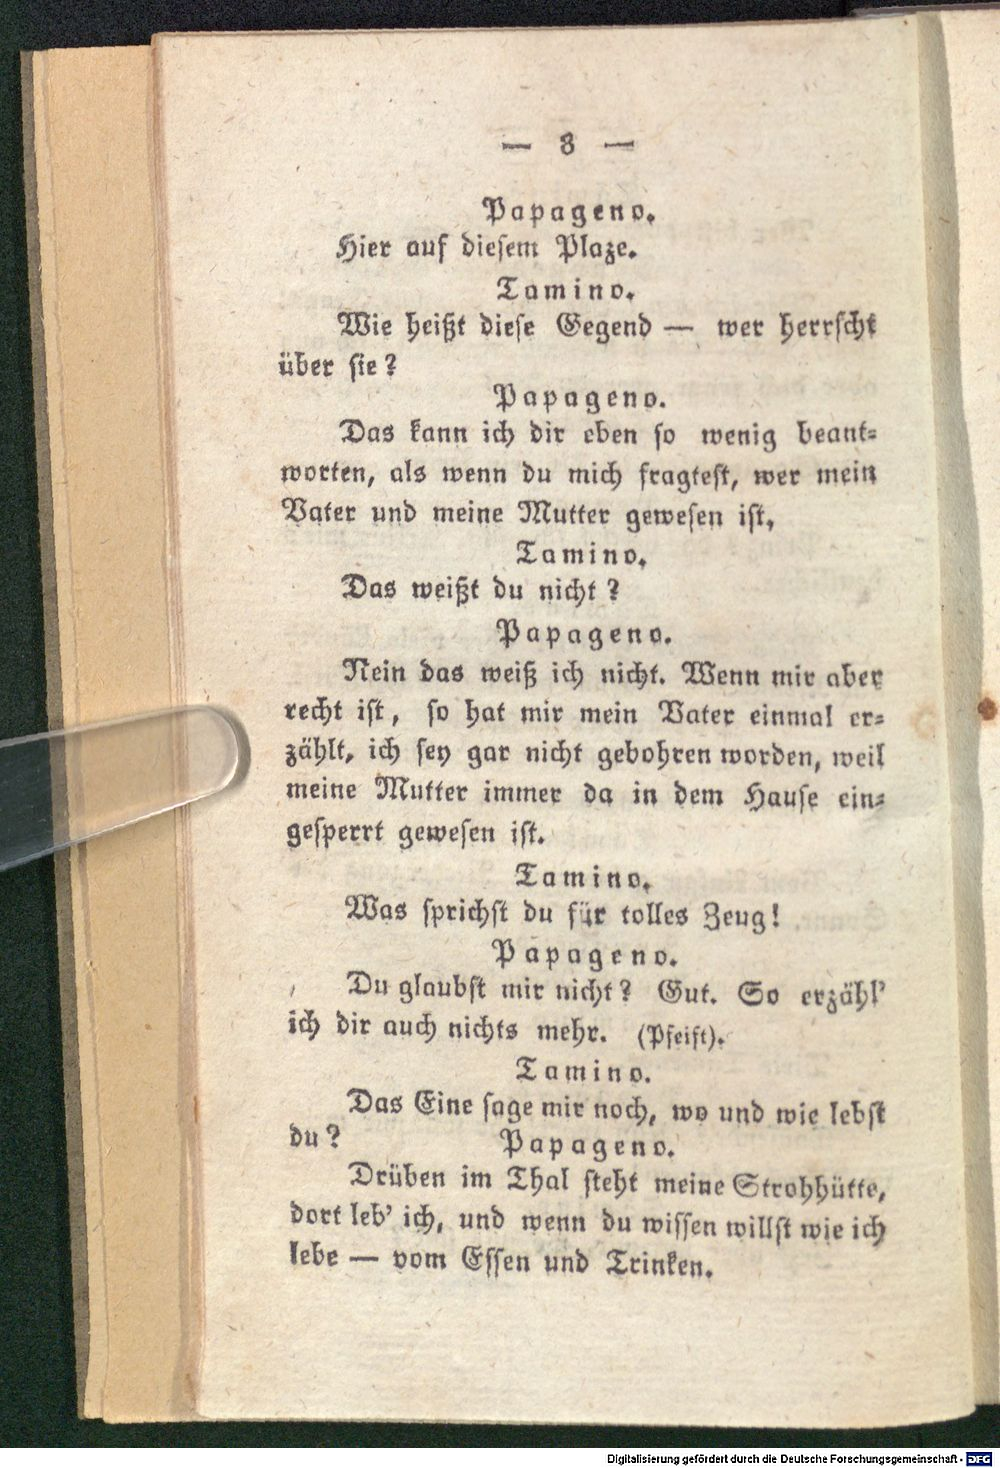 — 8 —
Papageno.
Hier auf diesem Plaze.
Tamino.
Wie heißt diese Gegend — wer herrscht
über sie?
Papageno.
Das kann ich dir eben so wenig beant-
worten, als wenn du mich fragtest, wer mein
Vater und meine Mutter gewesen ist.
Tamino.
Das weißt du nicht?
Papageno.
Nein das weiß ich nicht. Wenn mir aber
recht ist, so hat mir mein Vater einmal er-
zählt, ich sey gar nicht gebohren worden, weil
meine Mutter immer da in dem Hause ein-
gesperrt gewesen ist.
Tamino.
Was sprichst du für tolles Zeug!
Papageno.
Du glaubst mir nicht? Gut. So erzähl'
ich dir auch nichts mehr. (Pfeift).
Tamino.
Das Eine sage mir noch, wo und wie lebst
du?
Papageno.
Drüben im Thal steht meine Strohhütte,
dort leb' ich, und wenn du wissen willst wie ich
lebe — vom Essen und Trinken.
Digitalisierung gefördert durch die Deutsche Forschungsgemeinschaft - DFG